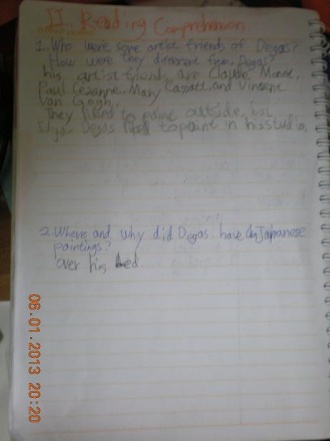 II. Reading Comprehension
1. Who were some artist friends of Degas?
How were they different from Degas?
his artist friends are Claude Monet,
Paul Cezanne, Mary Cassatt, and Vincent
Van Gogh.
They liked to paint outside, but
Degas liked to paint in his studio,
2. Where and why did Degas have Japanese
paintings?
over his bed
08.01.2013 20:20